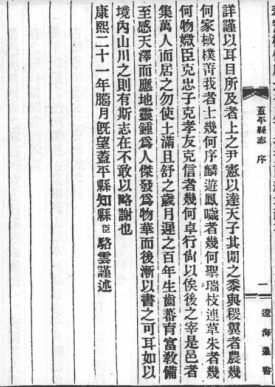 詳謹以耳目所及者上之尹憲以達天子其間之黍與稷翼者農幾
何家棫樸菁莪者士幾何序麟遊鳳噦者幾何聖瑞枝連草朱者幾
何物黴臣克忠子克孝友克信者幾何卓行尙以俟後之宰是邑者
集萬人而居之勿使土滿且舒之歲月遲之百年生齒蕃育富敎備
至感天澤而應地靈鍾爲人傑發爲物華而後漸以書之可耳如以
境內山川之則有斯志在不敢以略謝也
康熙二十一年臈月旣望蓋平縣知縣臣駱雲謹述
蓋平縣志 序
一
遼海叢書